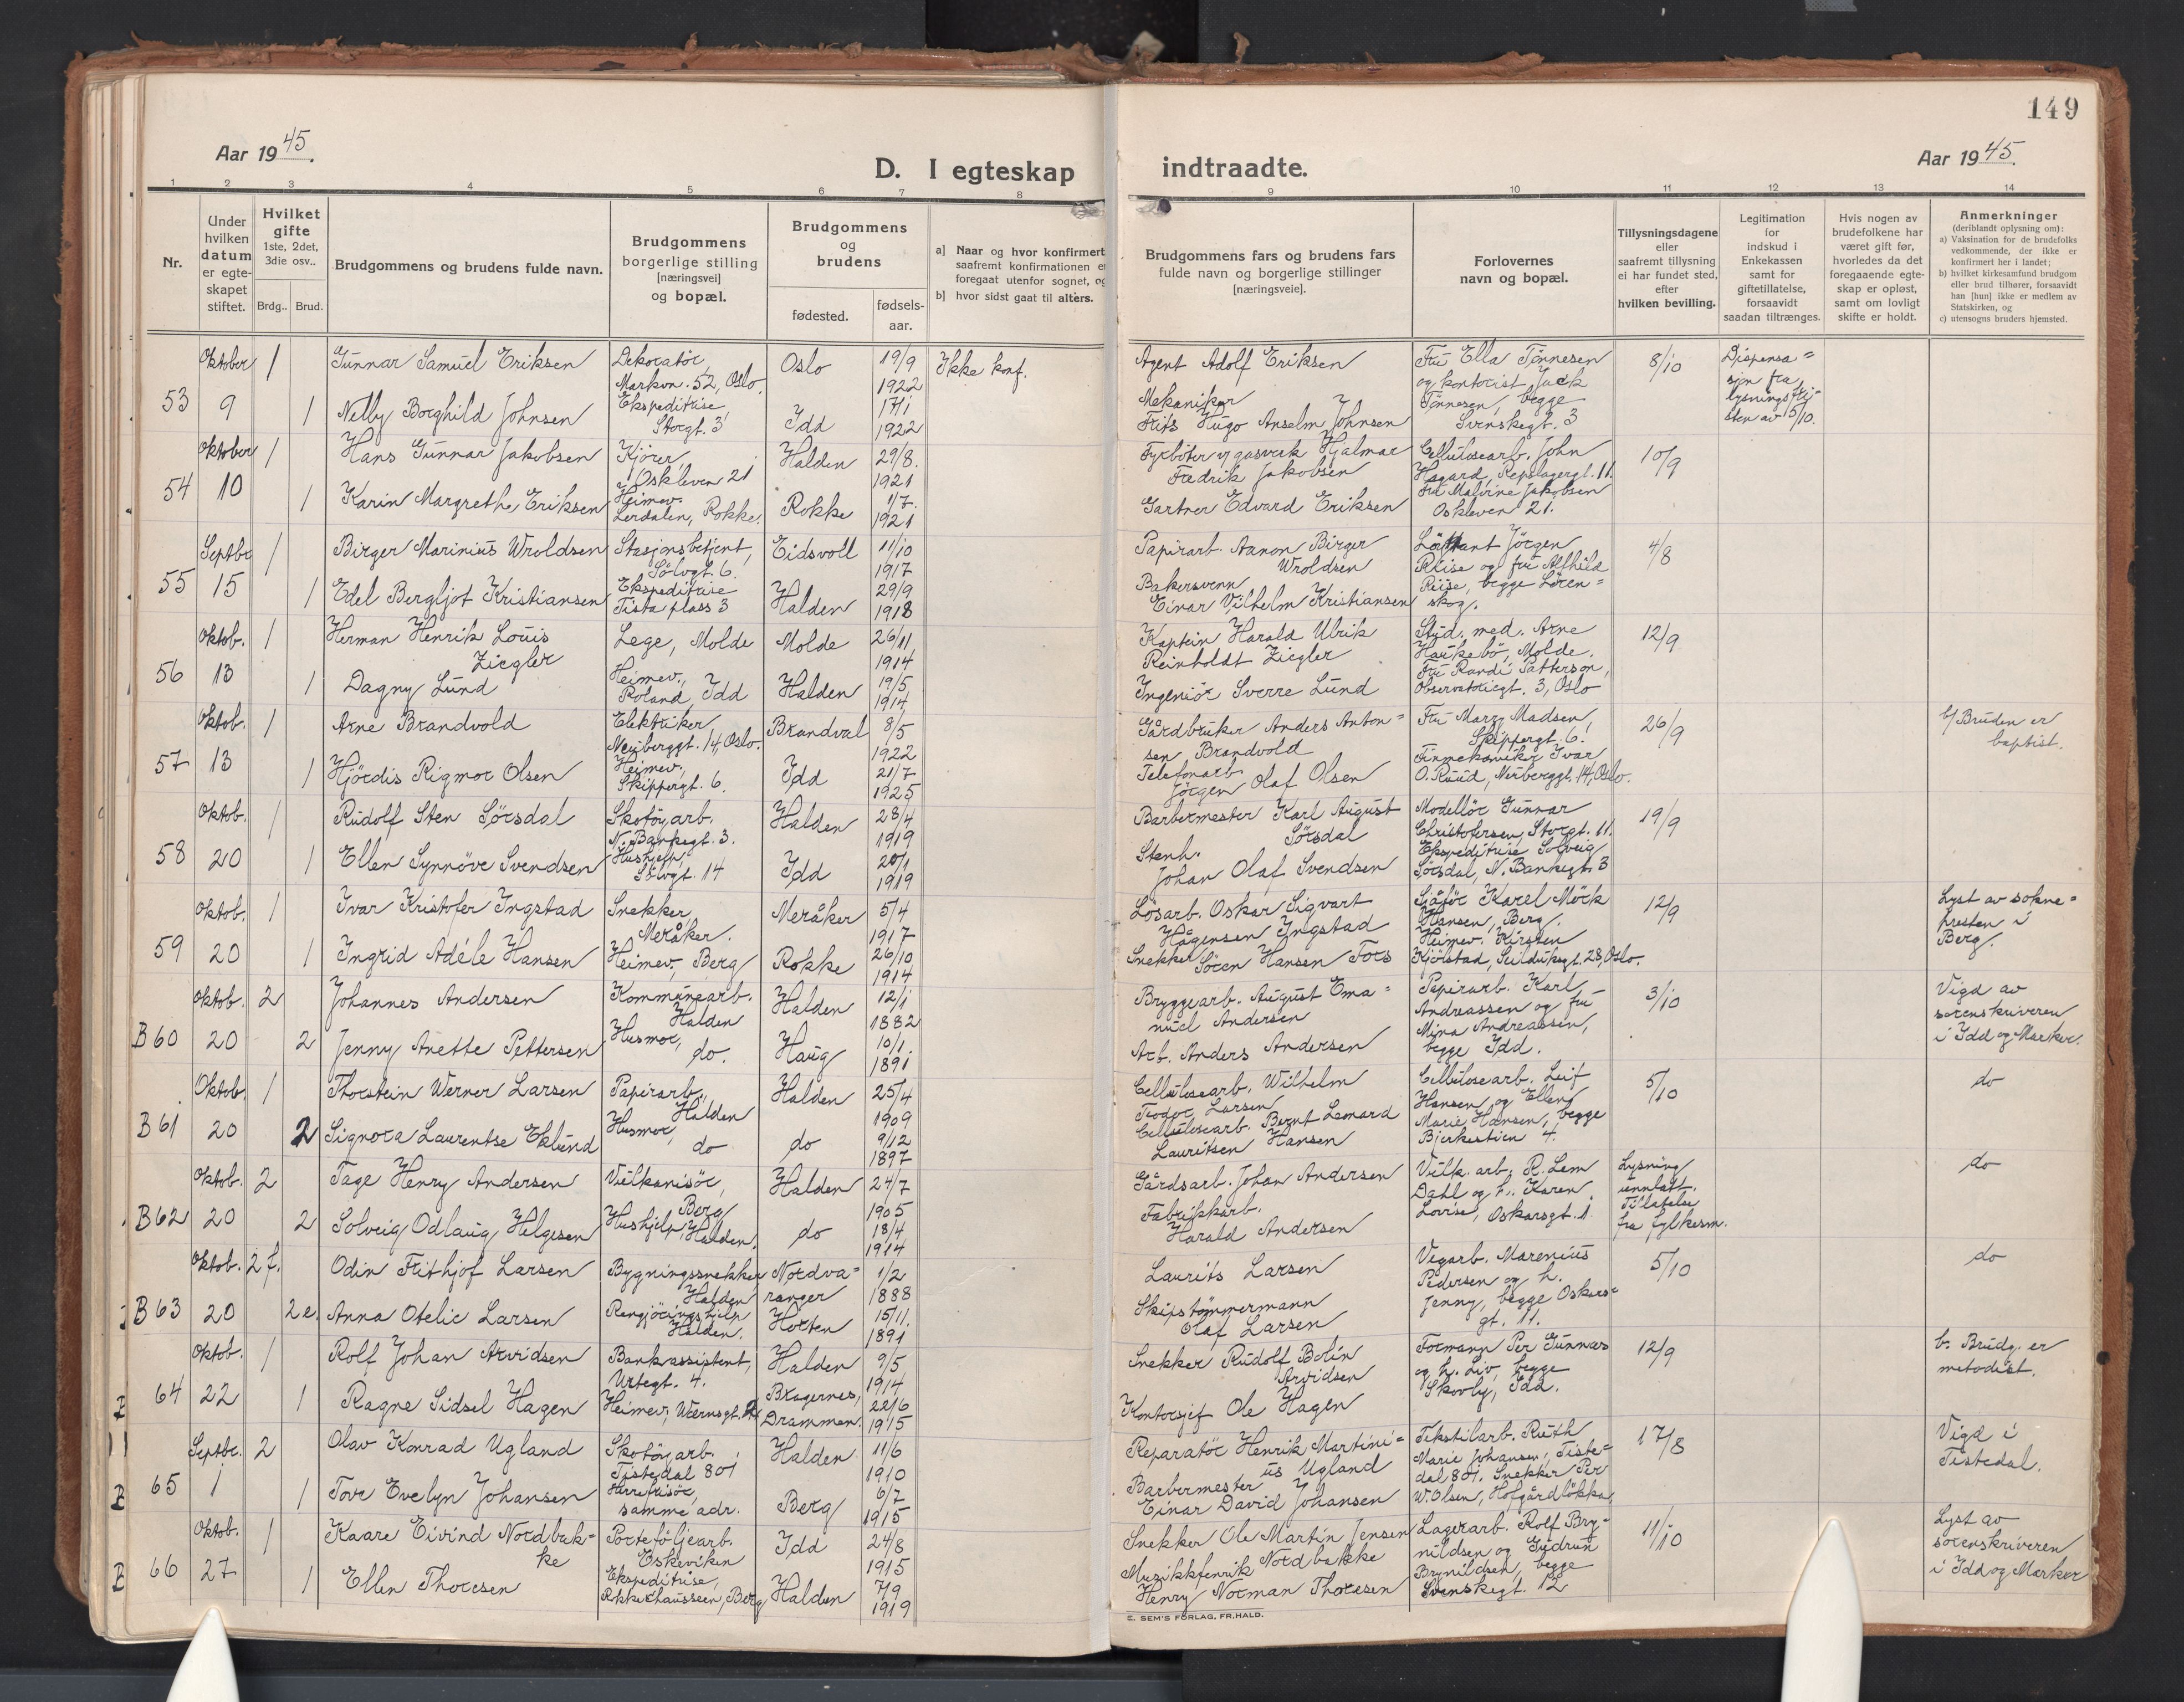 149
Aar 1945.
D. I egteskap indtraadte.
Aar 1945.
1 2 3 4 5 6 7 8 9 10 11 12 13 14
Nr.
Under hvilken datum er egte-skapet stiftet.
Hvilket gifte 1ste, 2det, 3die osv..
Brdg.. Brud.
Brudgommens og brudens fulde navn.
Brudgommens borgerlige stilling [næringsvei] og bopæl.
Brudgommens og brudens
fødested. fødsels-aar.
a] Naar og hvor konfirmert
saafremt konfirmationen er
foregaat utenfor sognet, og
b] hvor sidst gaat til alters.
Brudgommens fars og brudens fars
fulde navn og borgerlige stillinger
[næringsveie].
Forlovernes
navn og bopæl.
Tillysningsdagene
eller
saafremt tillysning
ei har fundet sted,
efter
hvilken bevilling.
Legitimation
for
indskud i
Enkekassen
samt for
giftetillatelse,
forsaavidt
saadan tiltrænges.
Hvis nogen av
brudefolkene har
været gift før,
hvorledes da det
foregaaende egte-
skap er opløst,
samt om lovligt
skifte er holdt.
Anmerkninger
(deriblandt oplysning om):
a) Vaksination for de brudefolks
vedkommende, der ikke er
konfirmert her i landet;
b) hvilket kirkesamfund brudgom
eller brud tilhører, forsaavidt
han [hun] ikke er medlem av
Statskirken, og
c) utensogns bruders hjemsted.
53 Oktober 9 1 Gunnar Samuel Eriksen Dekoratör, Markvn. 52, Oslo. Oslo 19/9 1922 Ikke konf. Agent Adolf Eriksen
1 Nelly Borghild Johnsen Ekspeditrise, Storgt. 3 Idd 17/1 1922 Mekaniker Frits Hugo Anselm Johnsen
Fru Ella Tönnesen og kontorist Jack Tönnesen, begge Svenskegt. 3 8/10 Dispensa= sjon fra lysningsfri- sten av 5/10.
54 Oktober 10 1 Hans Gunnar Jakobsen Kjörer, Oskleven 21 Halden 29/8. 1921 Fyrböter v/ gasverk Hjalmar Fredrik Jakobsen
1 Karin Margrethe Eriksen Heimev. Lerdalen, Rokke. Rokke 1/7. 1921 Gartner Edvard Eriksen
Cellulosearb. John Hagard, Repslagergt. 11. Fru Malvine Jakobsen Oskleven 21. 10/9
55 Septbr 15 1 Birger Marinius Wroldsen Stasjonsbetjent, Sölvgt. 6. Eidsvoll 11/10 1917 Papirarb. Aanon Birger Wroldsen
1 Edel Bergljot Kristiansen Ekspeditrise Tista plass 3 Halden 29/9 1918 Bakersvenn Einar Vilhelm Kristiansen
Jörgen Riise og fru Alfhild Riise, begge Lören= skog. 4/8
56 Oktob. 13 1 Herman Henrik Louis Ziegler Lege, Molde Molde 26/11 1914 Kaptein Harald Ulrik Reinholdt Ziegler
1 Dagny Lund Heimev., Roland, Idd Halden 19/5 1914 Ingeniör Sverre Lund
Stud. med. Arne Haukebö, Molde. Fru Randi Patterson, Observatoriegt. 3, Oslo 12/9
57 Oktob. 13 1 Arne Brandvold Elektriker Neuberggt. 14, Oslo. Brandval 8/5 1922 Gårdbruker Anders Anton= sen Brandvold
1 Hjördis Rigmor Olsen Heimev., Skippergt. 6. Idd 21/7 1925 Telefonarb. Jörgen Olaf Olsen
Fru Mary Madsen, Skippergt. 6. Finmekaniker Ivar O. Ruud, Neuberggt. 14, Oslo. 26/9 b/ Bruden er baptist.
58 Oktob. 20 1 Rudolf Sten Sörsdal Skotöyarb. N. Bankegt. 3. Halden 28/4 1919 Barbermester Karl August Sörsdal
1 Ellen Synnöve Svendsen Hushjelp, Sölvgt. 14 Idd 20/1 1919 Stenh. Johan Olaf Svendsen
Modellör Gunnar Christofersen, Storgt. 11. Ekspeditrise Solveig Sörsdal, N. Bankegt. 3 19/9
59 Oktob. 20 1 Ivar Kristofer Ingstad Snekker, Meråker. Meråker 5/4 1917 Lösarb. Oskar Sigvart Hågensen Ingstad
1 Ingrid Adéle Hansen Heimev., Berg Rokke 26/10 1914 Snekker Sören Hansen Fors
Sjåför Karel Mörk Hansen, Berg. Heimev. Kirsten Kjölstad, Seilduksgt. 28, Oslo. 12/9 Lyst av sokne= presten i Berg.
B60 Oktob. 20 2 Johannes Andersen Kommunearb. Halden Halden 12/1 1882 Bryggearb. August Ema= nuel Andersen
2 Jenny Anette Pettersen Husmor, do. Haug 10/1 1891 Arb. Anders Andersen
Papirarb. Karl Andreassen og fru Mina Andreassen, begge Idd. 3/10 Vigd av sorenskriveren i Idd og Marker.
B61 Oktob. 20 1 Thorstein Werner Larsen Papirarb., Halden Halden 25/4 1909 Cellulosearb. Wilhelm Teodor Larsen
2 Signora Laurentse Eklund Husmor, do do 9/12 1897 Cellulosearb. Bernt Leonard Lauritsen Hansen
Cellulosearb. Leif Hansen og Ellen Marie Hansen, begge Bjerkestien 4. 5/10 do
B62 Oktob. 20 2 Tage Henry Andersen Vulkanisör, Berg Halden 24/7 1905 Gårdsarb. Johan Andersen
2 Solveig Odlaug Helgesen Hushjelp, Halden. do 18/4 1914 Fabrikkarb. Harald Andersen
Vulk. arb. R. Lem Dahl og h. Karen Lovise, Oskarsgt. 1. Lysning unnlatt. Tillatelse fra fylkesm. do
B63 Oktob. 20 2 f. Odin Frithjof Larsen Bygningssnekker Halden Nordva= ranger 1/2 1888 Laurits Larsen
2 e. Anna Otelie Larsen Rengjöringshjelp Halden. Horten 15/11. 1891 Skipstömmermann Olaf Larsen
Vegarb. Marenius Pedersen og h. Jenny, begge Oskars= gt. 11. 5/10 do
64 Oktob. 22 1 Rolf Johan Arvidsen Bankassistent, Urtegt. 4. Halden 9/5 1914 Snekker Rudolf Bolin Arvidsen
1 Ragne Sidsel Hagen Heimev., Wærnsgt. 2 Bragernes, Drammen. 22/6 1915 Kontorsjef Ole Hagen
Formann Per Gunnars og h. Liv, begge Skovly, Idd. 12/9 b. Brudg. er metodist.
65 Septbr. 1 2 Olav Konrad Ugland Skotöyarb. Tistedal 801 Halden 11/6 1910 Reparatör Henrik Martini= us Ugland
1 Tove Evelyn Johansen samme adr. Berg 6/7 1915 Barbermester Einar David Johansen
Tekstilarb. Ruth Marie Johansen, Tiste= dal 801. Snekker Per W. Olsen, Hofgårdlökka 17/8 Vigd i Tistedal.
66 Oktob. 27 1 Kaare Eivind Nordbak= ke Porteföljearb. Eskeviken Idd 24/8 1915 Snekker Ole Martin Jensen Nordbakke
1 Ellen Thoresen Ekspeditrise, Rokkechausseen, Berg Halden 7/9 1919 Musikkfenrik Henry Norman Thoresen
Lagerarb. Rolf Bry= nildsen og Gudrun Brynildsen, begge Svenskegt. 12 11/10 Lyst av sorenskriveren i Idd og Marker
E. SEM'S FORLAG, FR.HALD.